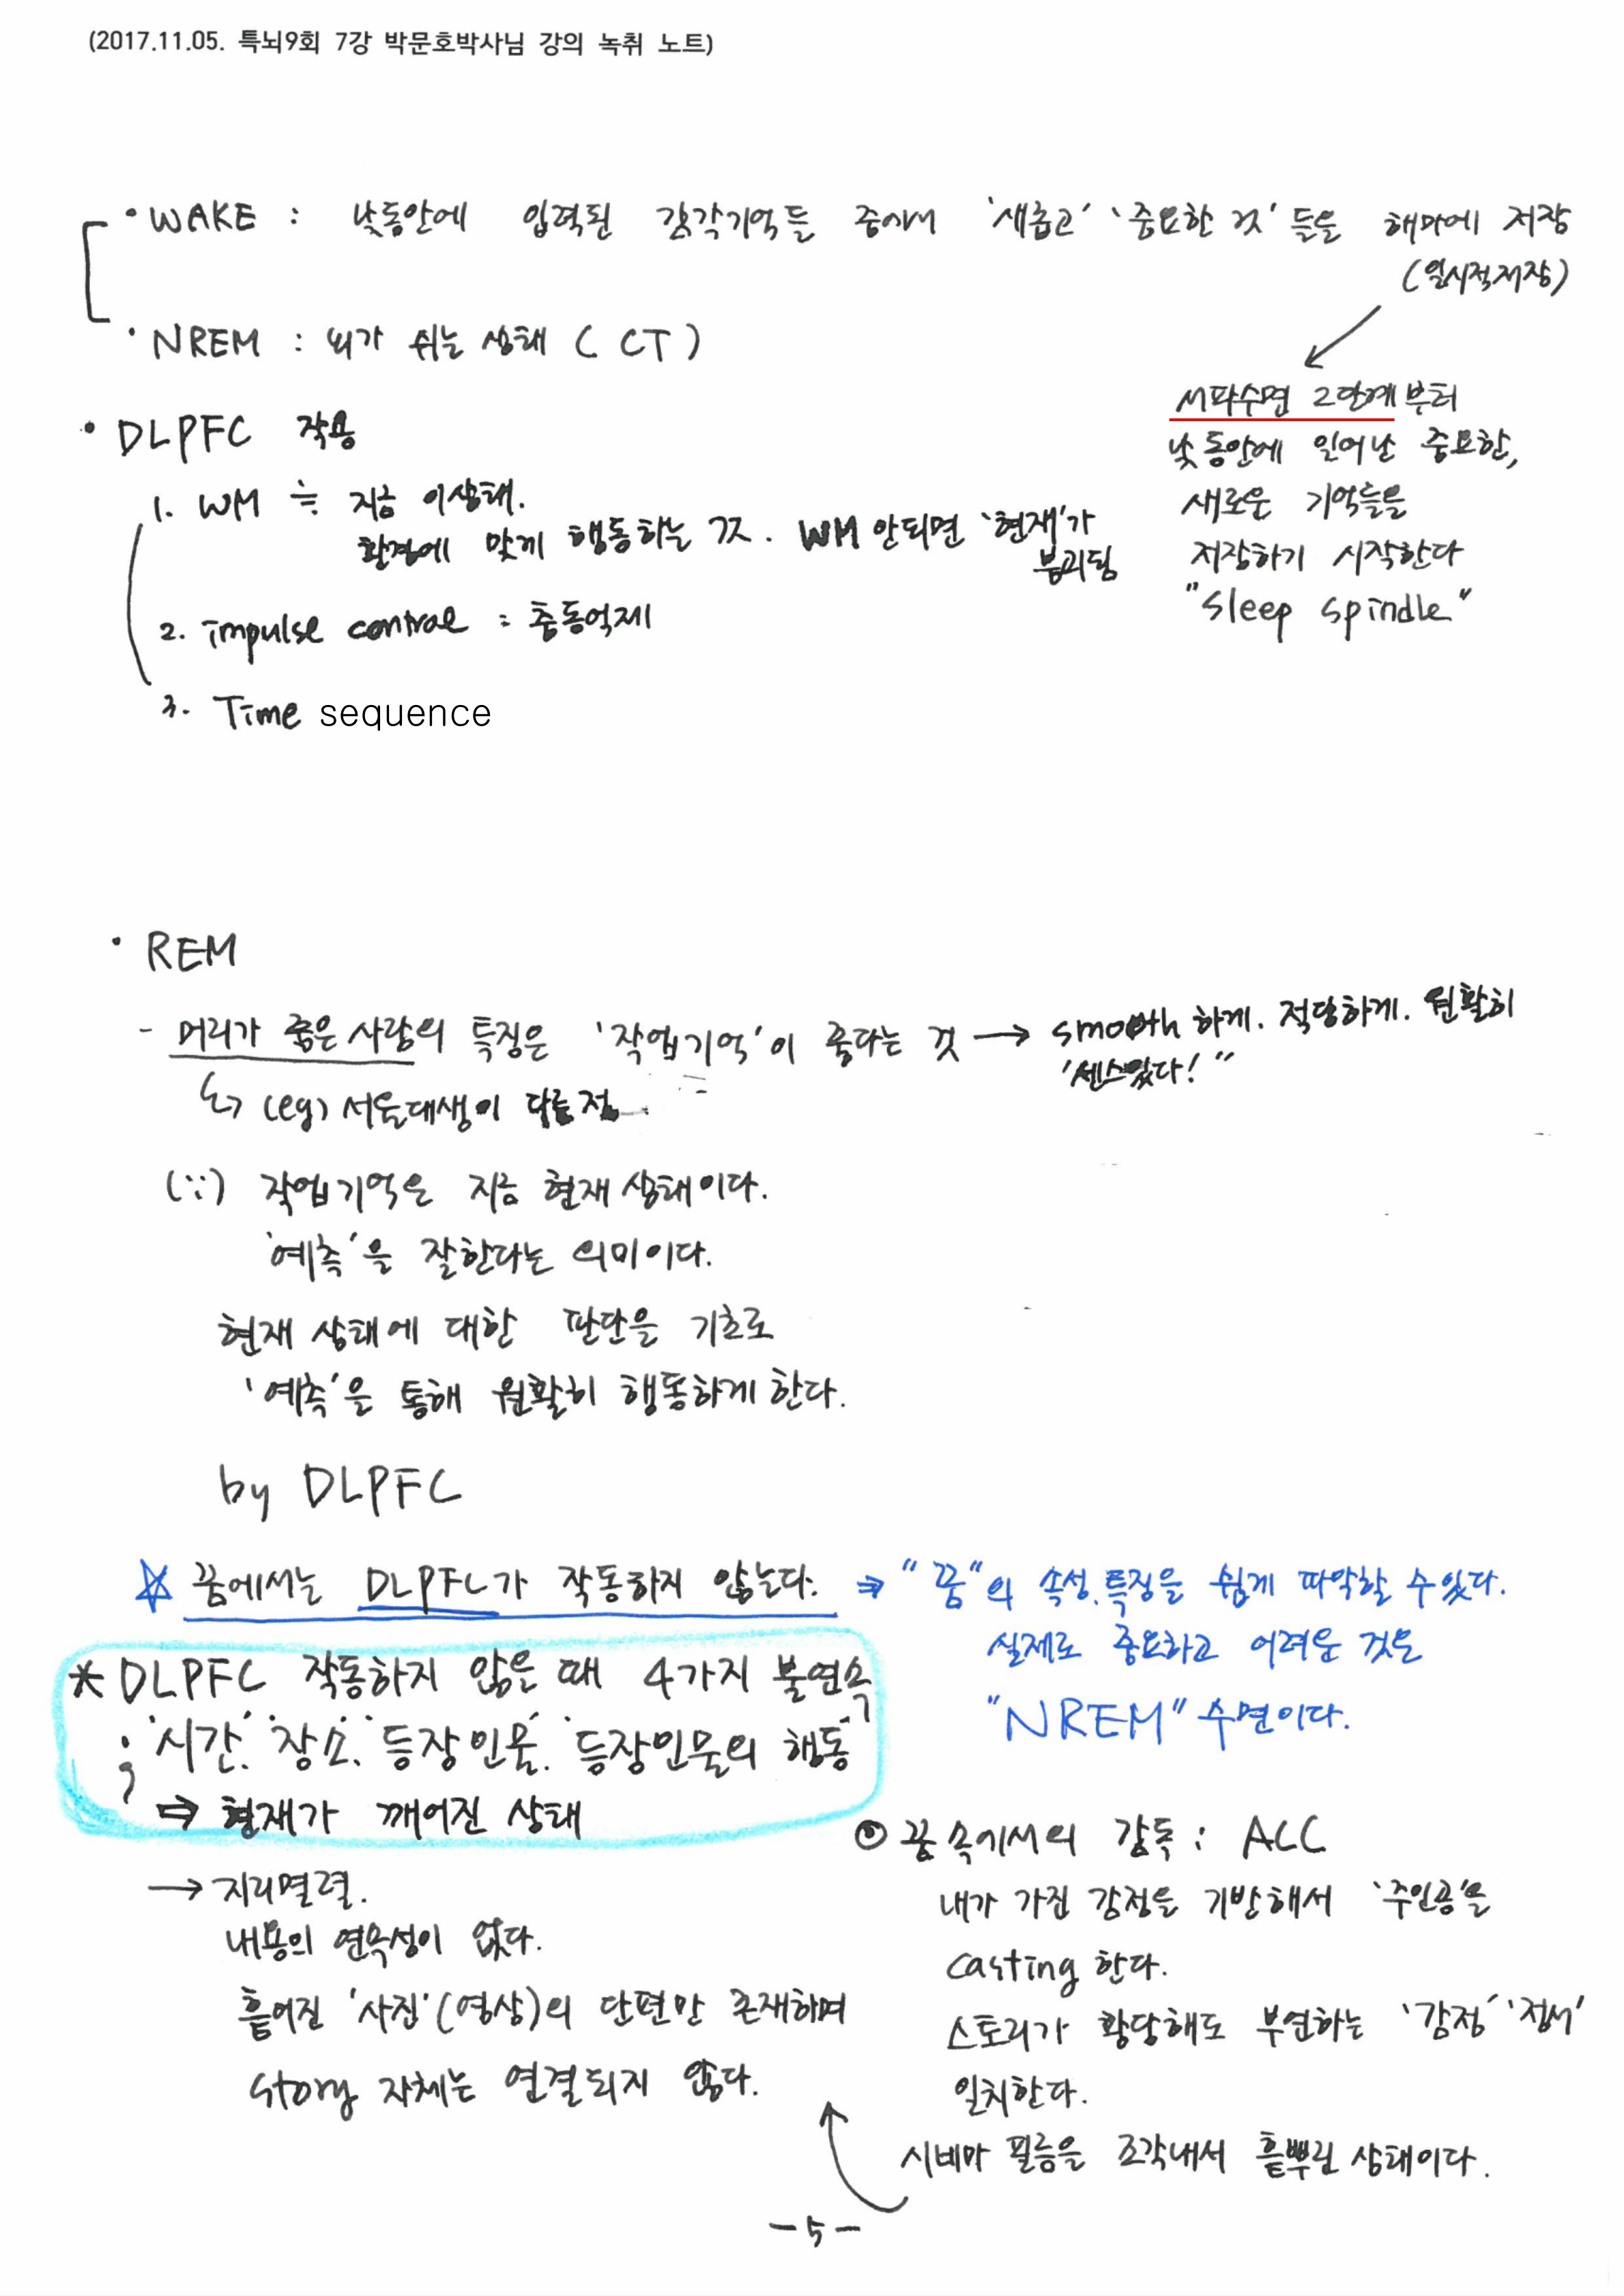 (2017.11.05. 특뇌9회 7강 박문호박사님 강의 녹취 노트)
• WAKE : 낮동안에 입력된 감각기억들 중에서 '새롭고' '중요한 것'들을 해마에 저장
(일시적저장)
• NREM : 뇌가 쉬는 상태 ( CT )
서파수면 2단계부터
낮동안에 일어난 중요한,
새로운 기억들을
저장하기 시작한다
"Sleep Spindle"
• DLPFC 작용
1. WM ≒ 지금 이상태.
환경에 맞게 행동하는 것. WM 안되면 '현재'가
붕괴됨
2. impulse control : 충동억제
3. Time sequence
• REM
- 머리가 좋은 사람의 특징은 '작업기억'이 좋다는 것 → smooth 하게. 적당하게. 원활히
'센스있다!"
↳ (eg) 서울대생이 다른점
(∵) 작업기억은 지금 현재 상태이다.
'예측'을 잘한다는 의미이다.
현재 상태에 대한 판단을 기초로
'예측'을 통해 원활히 행동하게 한다.
by DLPFC
☆ 꿈에서는 DLPFC가 작동하지 않는다. ⇒ "꿈"의 속성.특징을 쉽게 파악할 수있다.
실제로 중요하고 어려운 것은
"NREM" 수면이다.
* DLPFC 작동하지 않을 때 4가지 불연속
; '시간'. '장소'. '등장인물'. '등장인물의 행동'
⇒ 현재가 깨어진 상태
→ 지리멸렬.
내용의 연속성이 없다.
흩어진 '사진'(영상)의 단편만 존재하며
story 자체는 연결되지 않다.
⊙ 꿈속에서의 감독 : ACC
내가 가진 감정을 기반해서 '주인공'을
casting 한다.
스토리가 황당해도 부연하는 '감정' '정서'
일치한다.
시네마 필름을 조각내서 흩뿌린 상태이다.
- 5 -